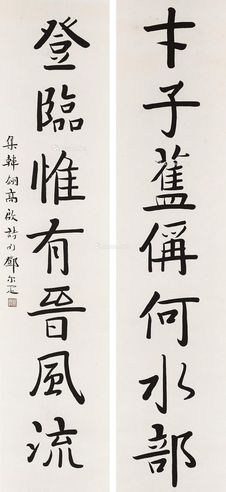 才子舊偁何水部
登臨惟有晉風流
集韓翃高啟詩句鄧尔疋